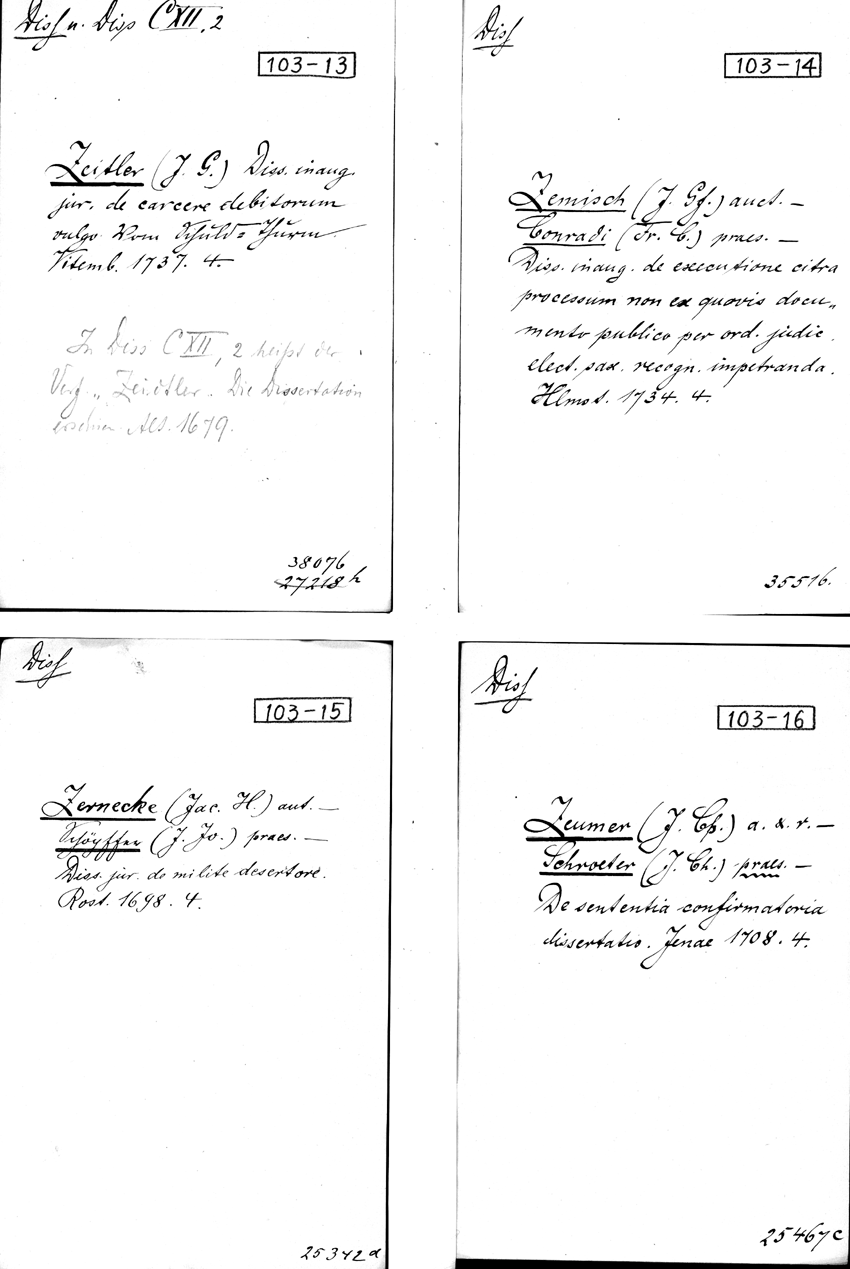 Diss u. Diss CXII, 2
103-13
Zeitler (J. G.) Diss. inaug.
jur. de carcere debitorum
vulgo Vom Schuld=Thurm
Vitemb. 1737. 4.
In Diss CXII, 2 heißt der
Verf. „Zeidtler". Die Dissertation
erschien Als. 1679.
38076
27218 h
Diss
103-14
Zemisch (J. Gf.) auct. —
Conradi (Fr. C.) praes. —
Diss. inaug. de executione citra
processum non ex quovis docu„
mento publico per ord. judic.
elect. sax. recogn. impetranda.
Hlmst. 1734. 4.
35516.
Diss
103-15
Zernecke (Jac. H.) aut. —
Schöpffer (J. Jo.) praes. —
Diss. jur. de milite desertore.
Rost. 1698. 4.
25342 d
Diss
103-16
Zeumer (J. Cph.) a. & r. —
Schroeter (J. Ch.) praes. —
De sententia confirmatoria
dissertatio. Jenae 1708. 4.
25467 c